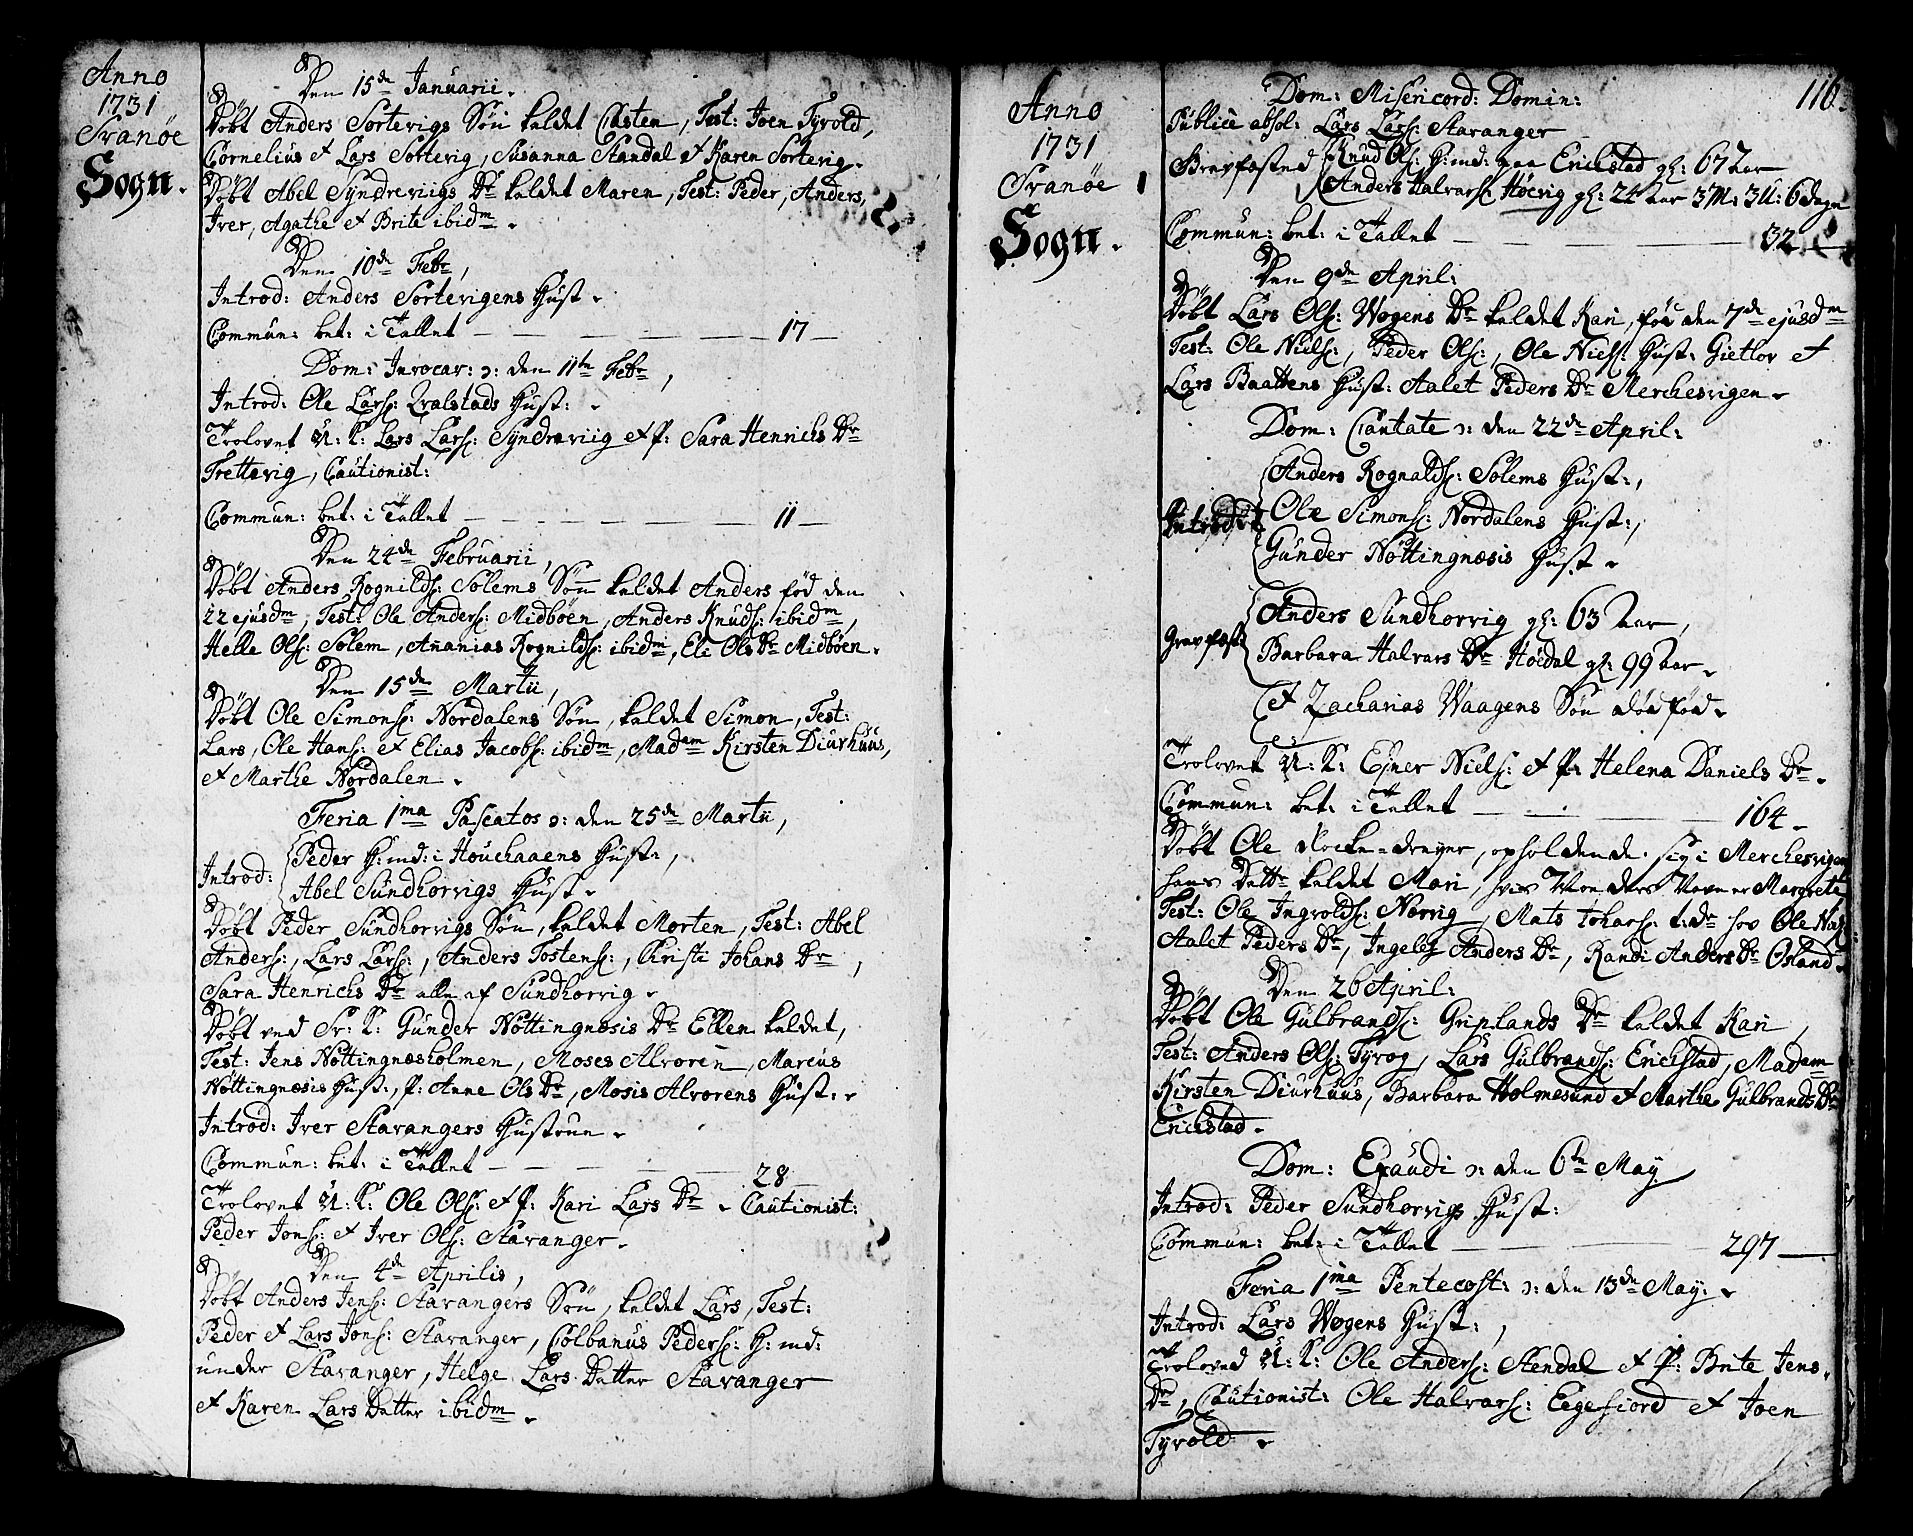 Anno
1731
Svanöe
Sogn.
Den 15de Januarii.
Döbt Anders Sortevigs Sön kaldet Casten, Test: Joen Tyvold,
Cornelius et Lars Sortevig, Susanna Standal et Karen Sortevig.
Döbt Abel Syndreviigs Dr kaldet Maren, Test: Peder, Anders,
Iver, Agathe et Brite ibidm.
Den 10de Febr,
Introd: Anders Sortevigens Hust.
Commun: bet: i Tallet — 17 —
Dom: Invocav: ɔ: den 11te Febr,
Introd: Ole Larss: Qvalstads Hust:.
Trolovet U: K: Lars Larss: Syndreviig et P: Sara Henrichs Dr
Trettevig, Cautionist:
Commun: bet: i Tallet — 11 —
Den 24de Februarii,
Döbt Anders Rognilds: Solems Sön kaldet Anders föd den
22 ejusdm, Test: Ole Anders: Midböen, Anders Knuds: ibidm,
Helle Ols: Solem, Ananias Rognilds: ibidm, Eli Ols Dr Midböen.
Den 15de Martii,
Döbt Ole Simons: Nordalens Sön, kaldet Simon, Test:
Lars, Ole Hans: et Elias Jacobs: ibidm, Madam Kirsten Diurhuus,
et Marthe Nordalen.
Feria 1ma Pascatos ɔ: den 25de Martii,
Introd: Peder H:md: i Houchaaens Hust:,
Abel Sundhorvigs Hust.
Döbt Peder Sundhorvigs Sön, kaldet Morten, Test: Abel
Anders:, Lars Lars:, Anders Tostens:, Christi Johans Dr,
Sara Henrichs Dr alle af Sundhorvig.
Döbt ved Sr: K: Gunder Nöttingnæsis Dr Ellen kaldet,
Test: Jens Nöttingnæsholmen, Moses Alvoren, Marcus
Nöttingnæsis Hust:, P: Anne Ols Dr, Mosis Alvorens Hust:.
Introd: Iver Stavangers Hustrue.
Commun: bet: i Tallet — 28 —
Trolovet U: K: Ole Ols: et P: Kari Lars Dr. Cautionist:
Peder Jons: et Iver Ols: Stavanger.
Den 4de Aprilis,
Döbt Anders Jens: Stavangers Sön, kaldet Lars, Test:
Peder et Lars Jons: Stavanger, Colbanus Peders: H:md:
under Stavanger, Helge Lars Datter Stavanger
et Karen Lars Datter ibidm.
116.
Anno
1731
Svanöe
Sogn.
Dom: Misericord: Domin:
Publice absol: Lars Lars: Stavanger
Gravfæsted Knud Ols: H:md: paa Erickstad gl: 67 Aar
Anders Halvars: Höevig gl: 24 Aar 3M: 3U: 6 dage
Commun: bet: i Tallet — 32 —
Den 9de April:
Döbt Lars Ols: Wogens Dr kaldet Kari, föd den 7de ejusdm
Test: Ole Niels:, Peder Ols:, Ole Niels: Hust: Gietlov et
Lars Baattens Hust: Aalet Peders Dr Merchesvigen.
Dom: Cantate ɔ: den 22de April:
Introd: Anders Rognalds: Solems Hust:,
Ole Simons: Nordalens Hust:,
Gunder Nöttingnæsis Hust.
Gravfæst: Anders Sundhorvig gl: 63 Aar,
Barbara Halvars Dr Höedal gl: 99 Aar.
et Zacharias Waagens Sön död föd.
Trolovet U: K: Ejner Niels: et P: Helena Daniels Dr.
Commun: bet: i Tallet — 164.
Döbt Ole Klocke-dreyer, opholdende sig i Merchesvigen
hans Dattr kaldet Mari, hvis Moeders Navn er Margrete
Test: Ole Ingvolds: Norvig, Mats Johars: t:dr hos Ole
Aalet Peders Dr, Ingeleg Anders Dr, Randi Anders Dr Osland.
Den 26 April:
Döbt Ole Gulbrands: Griplands Dr kaldet Kari,
Test: Anders Ols: Tyvog, Lars Gulbrands: Erickstad, Madam
Kirsten Diurhuus, Barbara Holmesund et Marthe Gulbrands Dr
Erickstad.
Dom: Exaudi ɔ: den 6te May
Introd: Peder Sundhorvigs Hust:
Commun: bet: i Tallet — 297 —
Feria 1ma Pentecost: ɔ: den 13de May:.
Introd: Lars Wogens Hust:,
Troloved U: K: Ole Anders: Stendal et P: Brite Jens
Dr, Cautionist: Ole Halvars: Eegefiord et Joen
Tyvold.